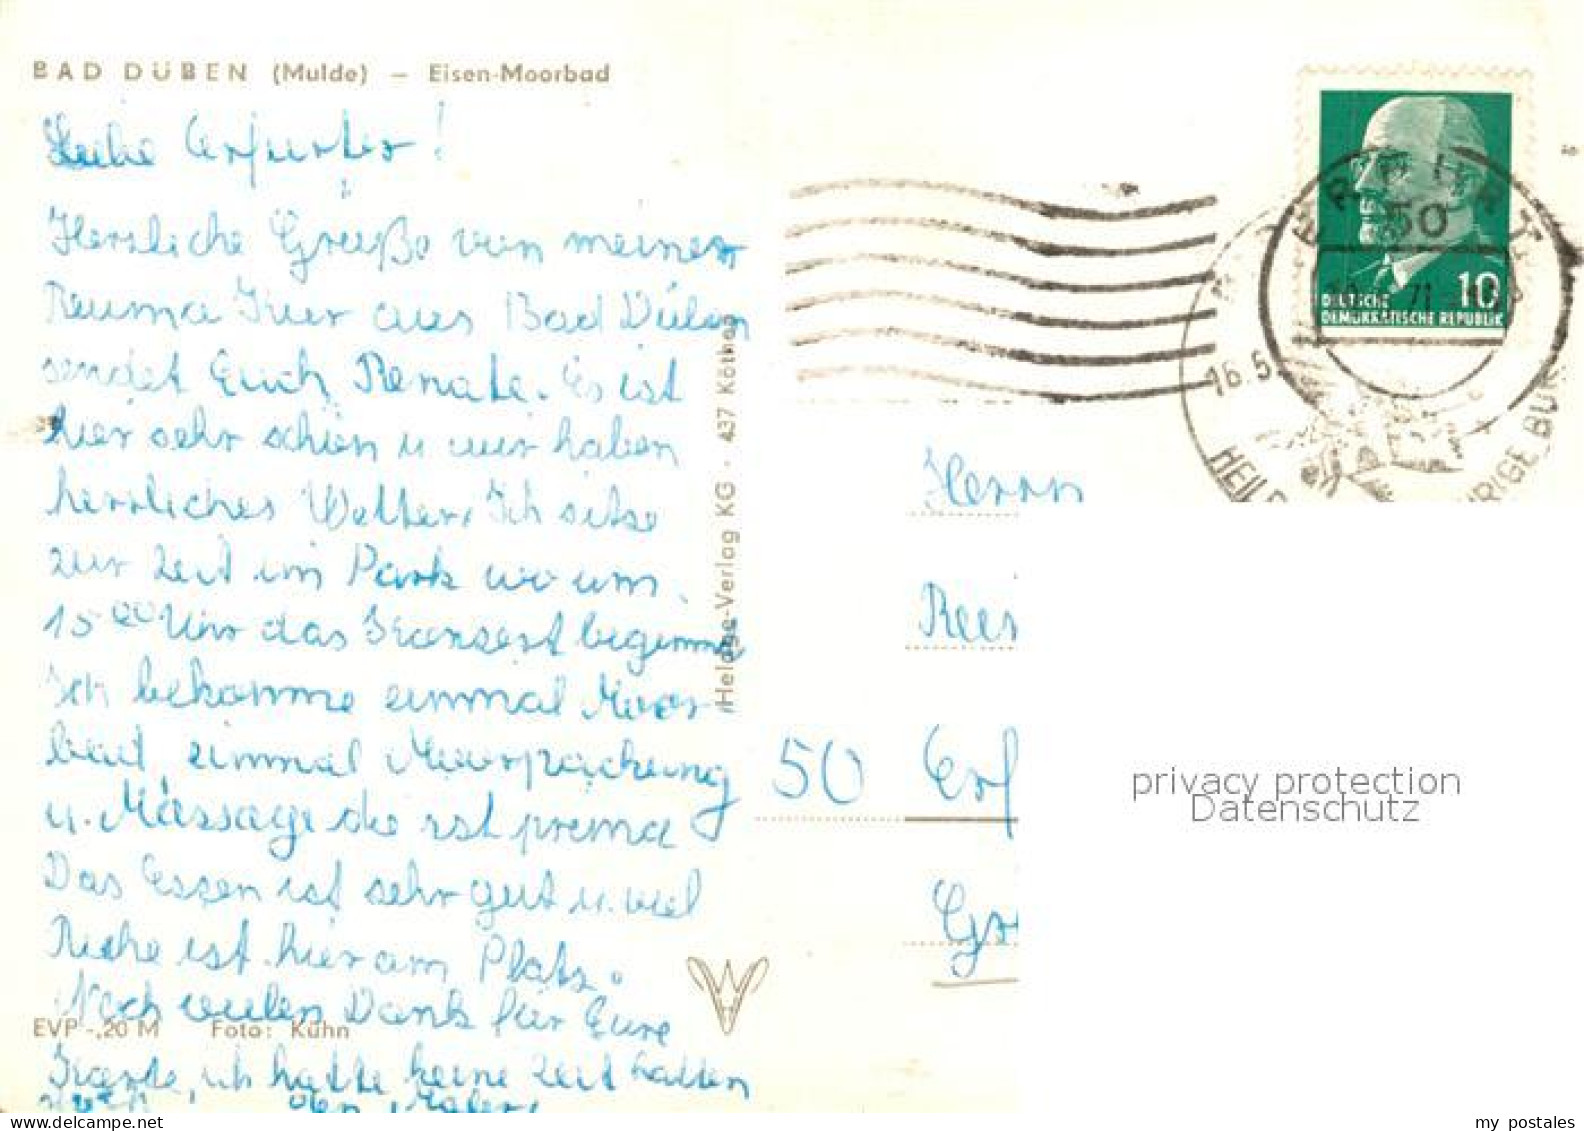 BAD DÜBEN (Mulde) – Eisen-Moorbad
Liebe Erfurter!
Herzliche Grüße von meiner
Reuma Kur aus Bad Düben
sendet Euch Renate. Es ist
hier sehr schön u wir haben
herrliches Wetter. Ich sitze
zur Zeit im Park wo um
15 00 Uhr das Konzert beginnt
Ich bekomme einmal Moor
bad, einmal Moorpackung
u. Massage die ist prima
Das Essen ist sehr gut u. viel
Ruhe ist hier am Platz.
Noch vielen Dank für Eure
Karte, ich hatte keine Zeit
EVP -,20 M Foto: Kühn
Heldge-Verlag KG · 437 Köthen
10
DEUTSCHE
DEMOKRATISCHE REPUBLIK
ERFURT
50
71
16.5.
HEILB
HRIGE BUR
Herrn
50 Erf
privacy protection
Datenschutz
my postales